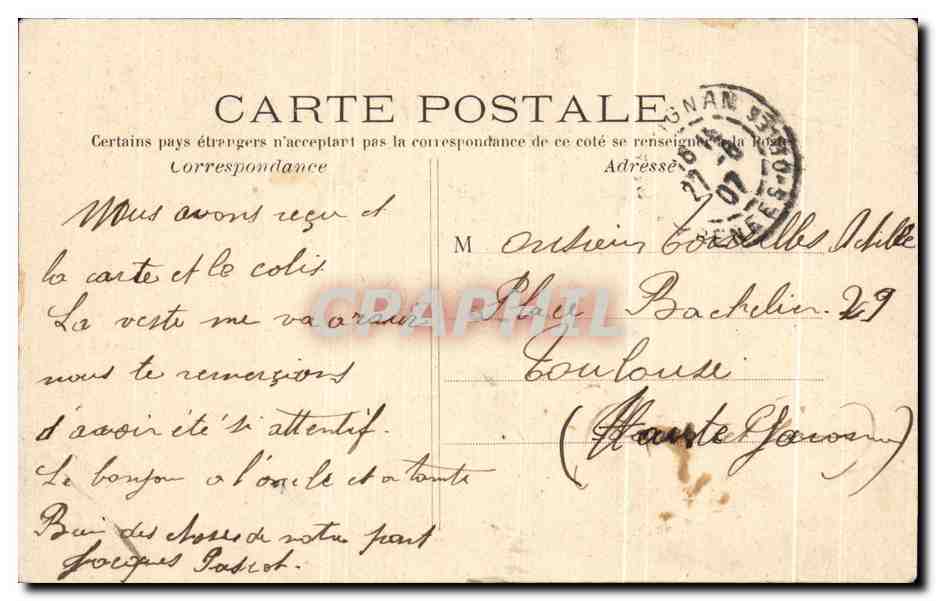 CARTE POSTALE
Certains pays étrangers n'acceptant pas la correspondance de ce coté se renseigner à la Poste
Correspondance
Adresse
Nous avons reçu et
la carte et le colis
La veste me va
nous te remerçions
d'avoir été si attentif.
Le bonjour a l'oncle et a tante
Bien des choses de notre part
Jacques Pascot.
M onsieur Achille
Place Bachelier. 29
Toulouse
(Haute Garonne)
IGNAN
27
07
CRAPHIL